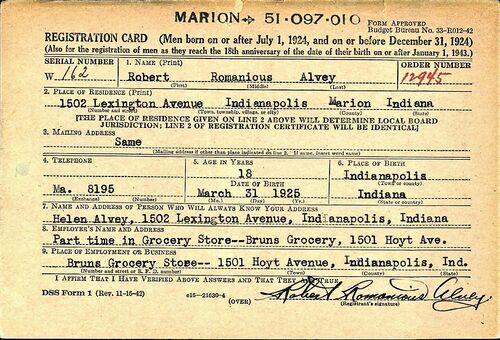 MARION→ 51-097-010
FORM APPROVED
Budget Bureau No. 33-R012-42
REGISTRATION CARD (Men born on or after July 1, 1924, and on or before December 31, 1924)
(Also for the registration of men as they reach the 18th anniversary of the date of their birth on or after January 1, 1943.)
SERIAL NUMBER 1. NAME (Print) ORDER NUMBER
W 162 Robert Romanious Alvey 12945
(First) (Middle) (Last)
2. PLACE OF RESIDENCE (Print)
1502 Lexington Avenue Indianapolis Marion Indiana
(Number and street) (Town, township, village, or city) (County) (State)
[THE PLACE OF RESIDENCE GIVEN ON LINE 2 ABOVE WILL DETERMINE LOCAL BOARD
JURISDICTION; LINE 2 OF REGISTRATION CERTIFICATE WILL BE IDENTICAL]
3. MAILING ADDRESS
Same
(Mailing address if other than place indicated on line 2. If same, insert word same)
4. TELEPHONE 5. AGE IN YEARS 6. PLACE OF BIRTH
18 Indianapolis
DATE OF BIRTH (Town or county)
Ma. 8195 March 31 1925 Indiana
(Exchange) (Number) (Mo.) (Day) (Yr.) (State or country)
7. NAME AND ADDRESS OF PERSON WHO WILL ALWAYS KNOW YOUR ADDRESS
Helen Alvey, 1502 Lexington Avenue, Indianapolis, Indiana
8. EMPLOYER'S NAME AND ADDRESS
Part time in Grocery Store--Bruns Grocery, 1501 Hoyt Ave.
9. PLACE OF EMPLOYMENT OR BUSINESS
Bruns Grocery Store-- 1501 Hoyt Avenue, Indianapolis, Ind.
(Number and street or R. F. D. number) (Town) (County) (State)
I AFFIRM THAT I HAVE VERIFIED ABOVE ANSWERS AND THAT THEY ARE TRUE.
DSS Form 1 (Rev. 11-16-42) 16—21630-4 Robert Romanious Alvey
(OVER) (Registrant's signature)